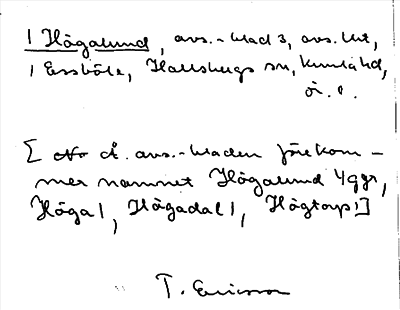 1 Högalund, avs.-blad 3, avs. litt,
1 Essböle, Hallsbergs sn, Kumla hd,
ö. l.
[ Å avs.-bladen förekom-
mer namnet Högalund 4 ggr,
Höga 1, Högadal 1, Högtorp 1]
T. Ericsson